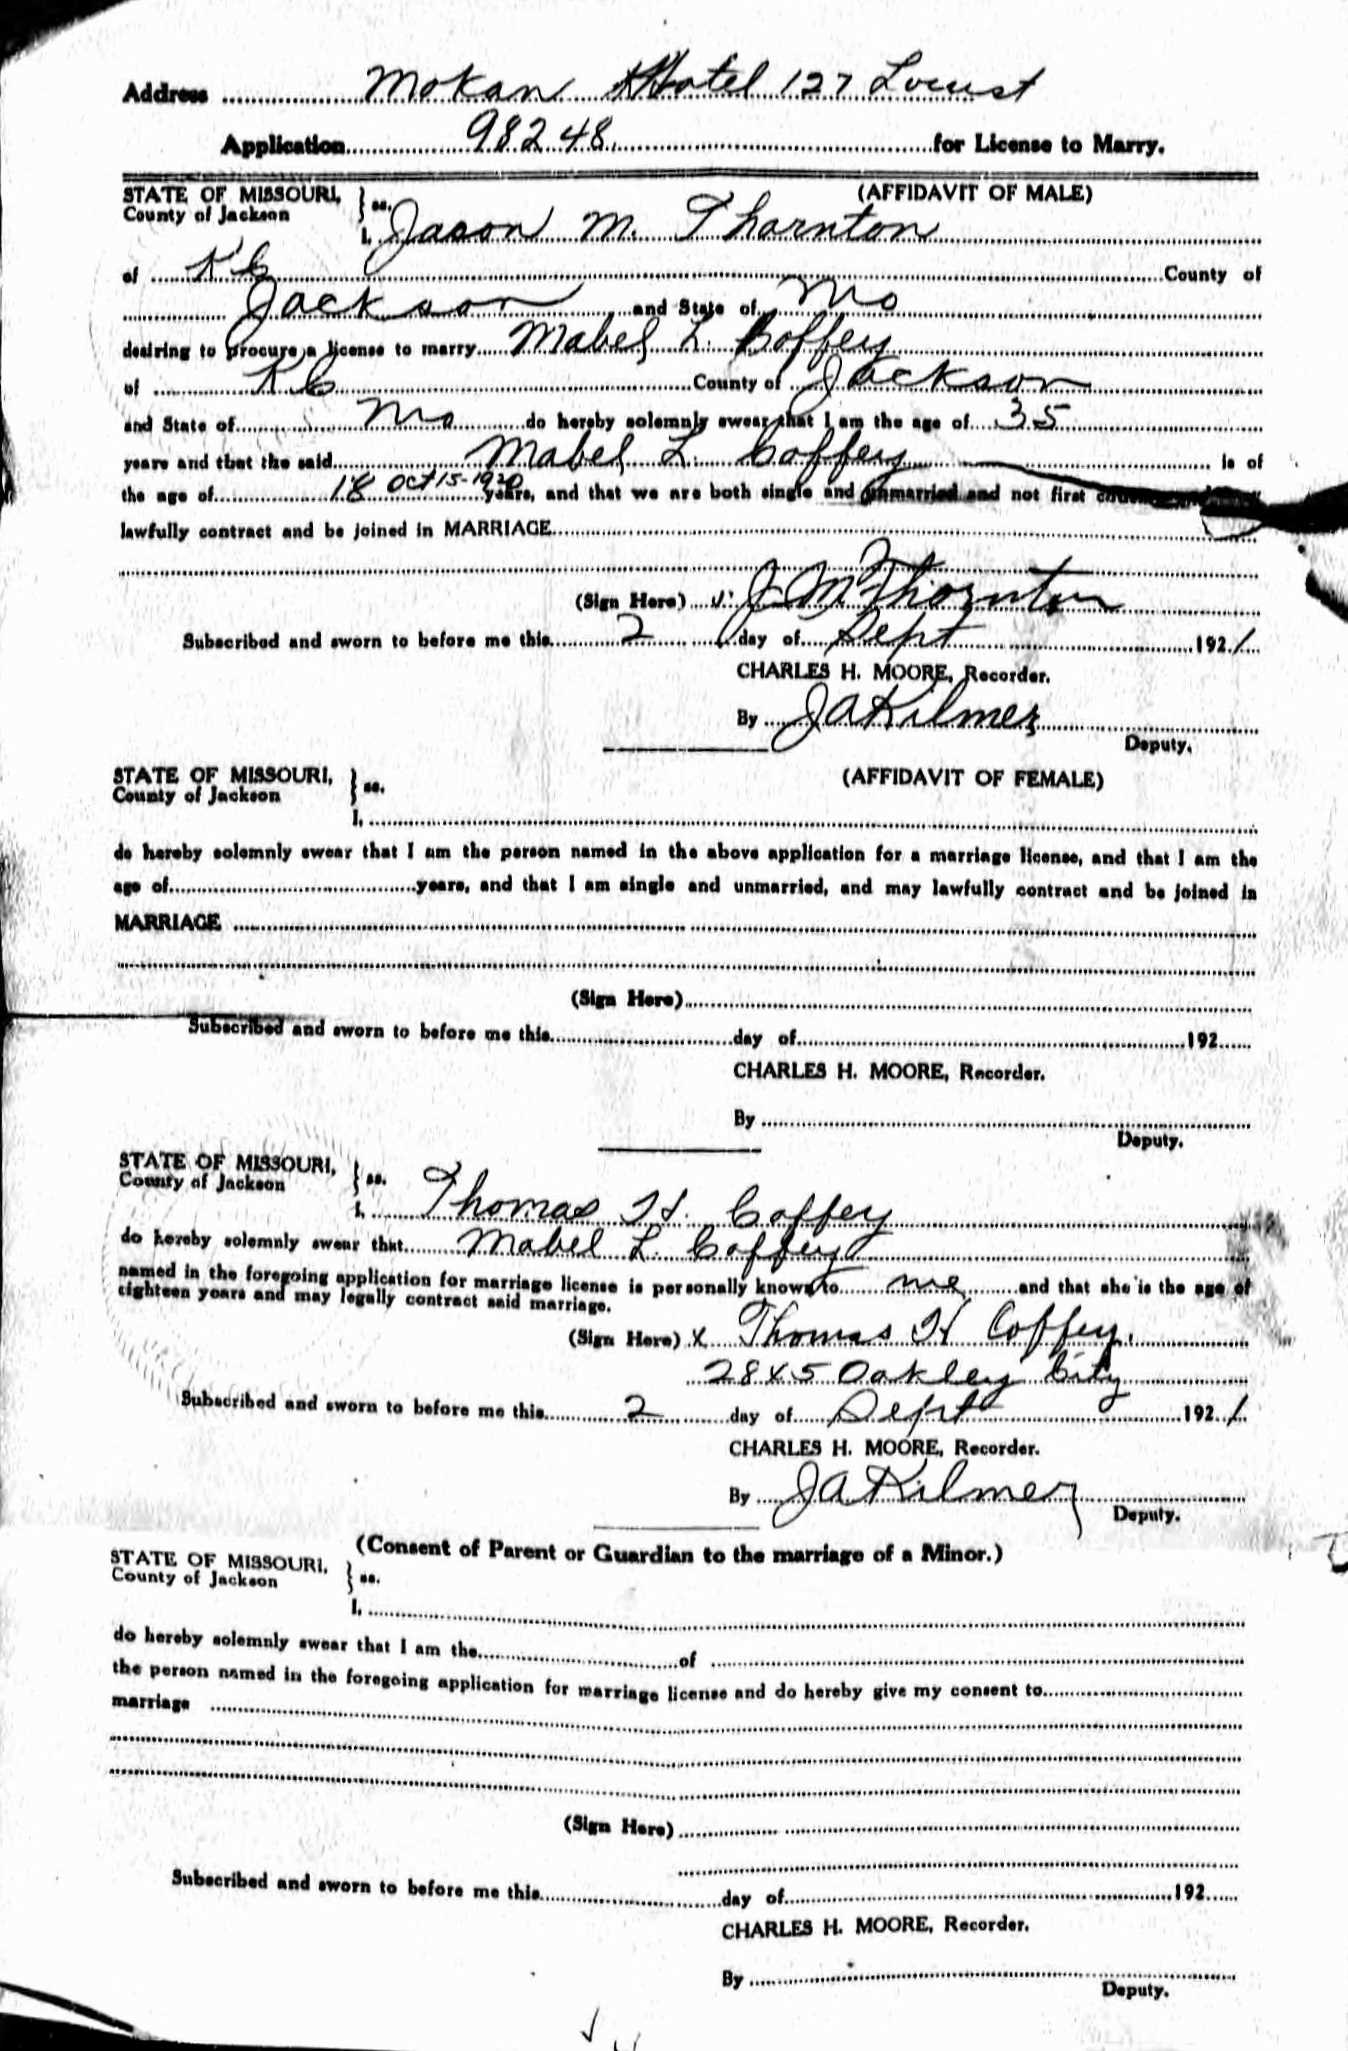 Address Mokan Hotel 127 Locust
Application 98248 for License to Marry.
STATE OF MISSOURI, } ss. (AFFIDAVIT OF MALE)
County of Jackson
I, Jason M. Thornton
of KC County of
Jackson and State of Mo
desiring to procure a license to marry Mabel L. Coffey
of KC County of Jackson
and State of Mo do hereby solemnly swear that I am the age of 35
years and that the said Mabel L. Coffey is of
the age of 18 Oct 15-1920 years, and that we are both single and unmarried and not first
lawfully contract and be joined in MARRIAGE
(Sign Here) J M Thornton
Subscribed and sworn to before me this 2 day of Sept 1921
CHARLES H. MOORE, Recorder.
By J A Kilmer
Deputy.
STATE OF MISSOURI, } ss. (AFFIDAVIT OF FEMALE)
County of Jackson
I,
do hereby solemnly swear that I am the person named in the above application for a marriage license, and that I am the
age of years, and that I am single and unmarried, and may lawfully contract and be joined in
MARRIAGE
(Sign Here)
Subscribed and sworn to before me this day of 192
CHARLES H. MOORE, Recorder.
By
Deputy.
STATE OF MISSOURI, } ss.
County of Jackson
I, Thomas H. Coffey
do hereby solemnly swear that Mabel L. Coffey
named in the foregoing application for marriage license is personally known to me and that she is the age of
eighteen years and may legally contract said marriage.
(Sign Here) x Thomas H Coffey.
2845 Oakley City
Subscribed and sworn to before me this 2 day of Sept 1921
CHARLES H. MOORE, Recorder.
By J A Kilmer
Deputy.
(Consent of Parent or Guardian to the marriage of a Minor.)
STATE OF MISSOURI, } ss.
County of Jackson
I,
do hereby solemnly swear that I am the of
the person named in the foregoing application for marriage license and do hereby give my consent to
marriage
(Sign Here)
Subscribed and sworn to before me this day of 192
CHARLES H. MOORE, Recorder.
By
Deputy.